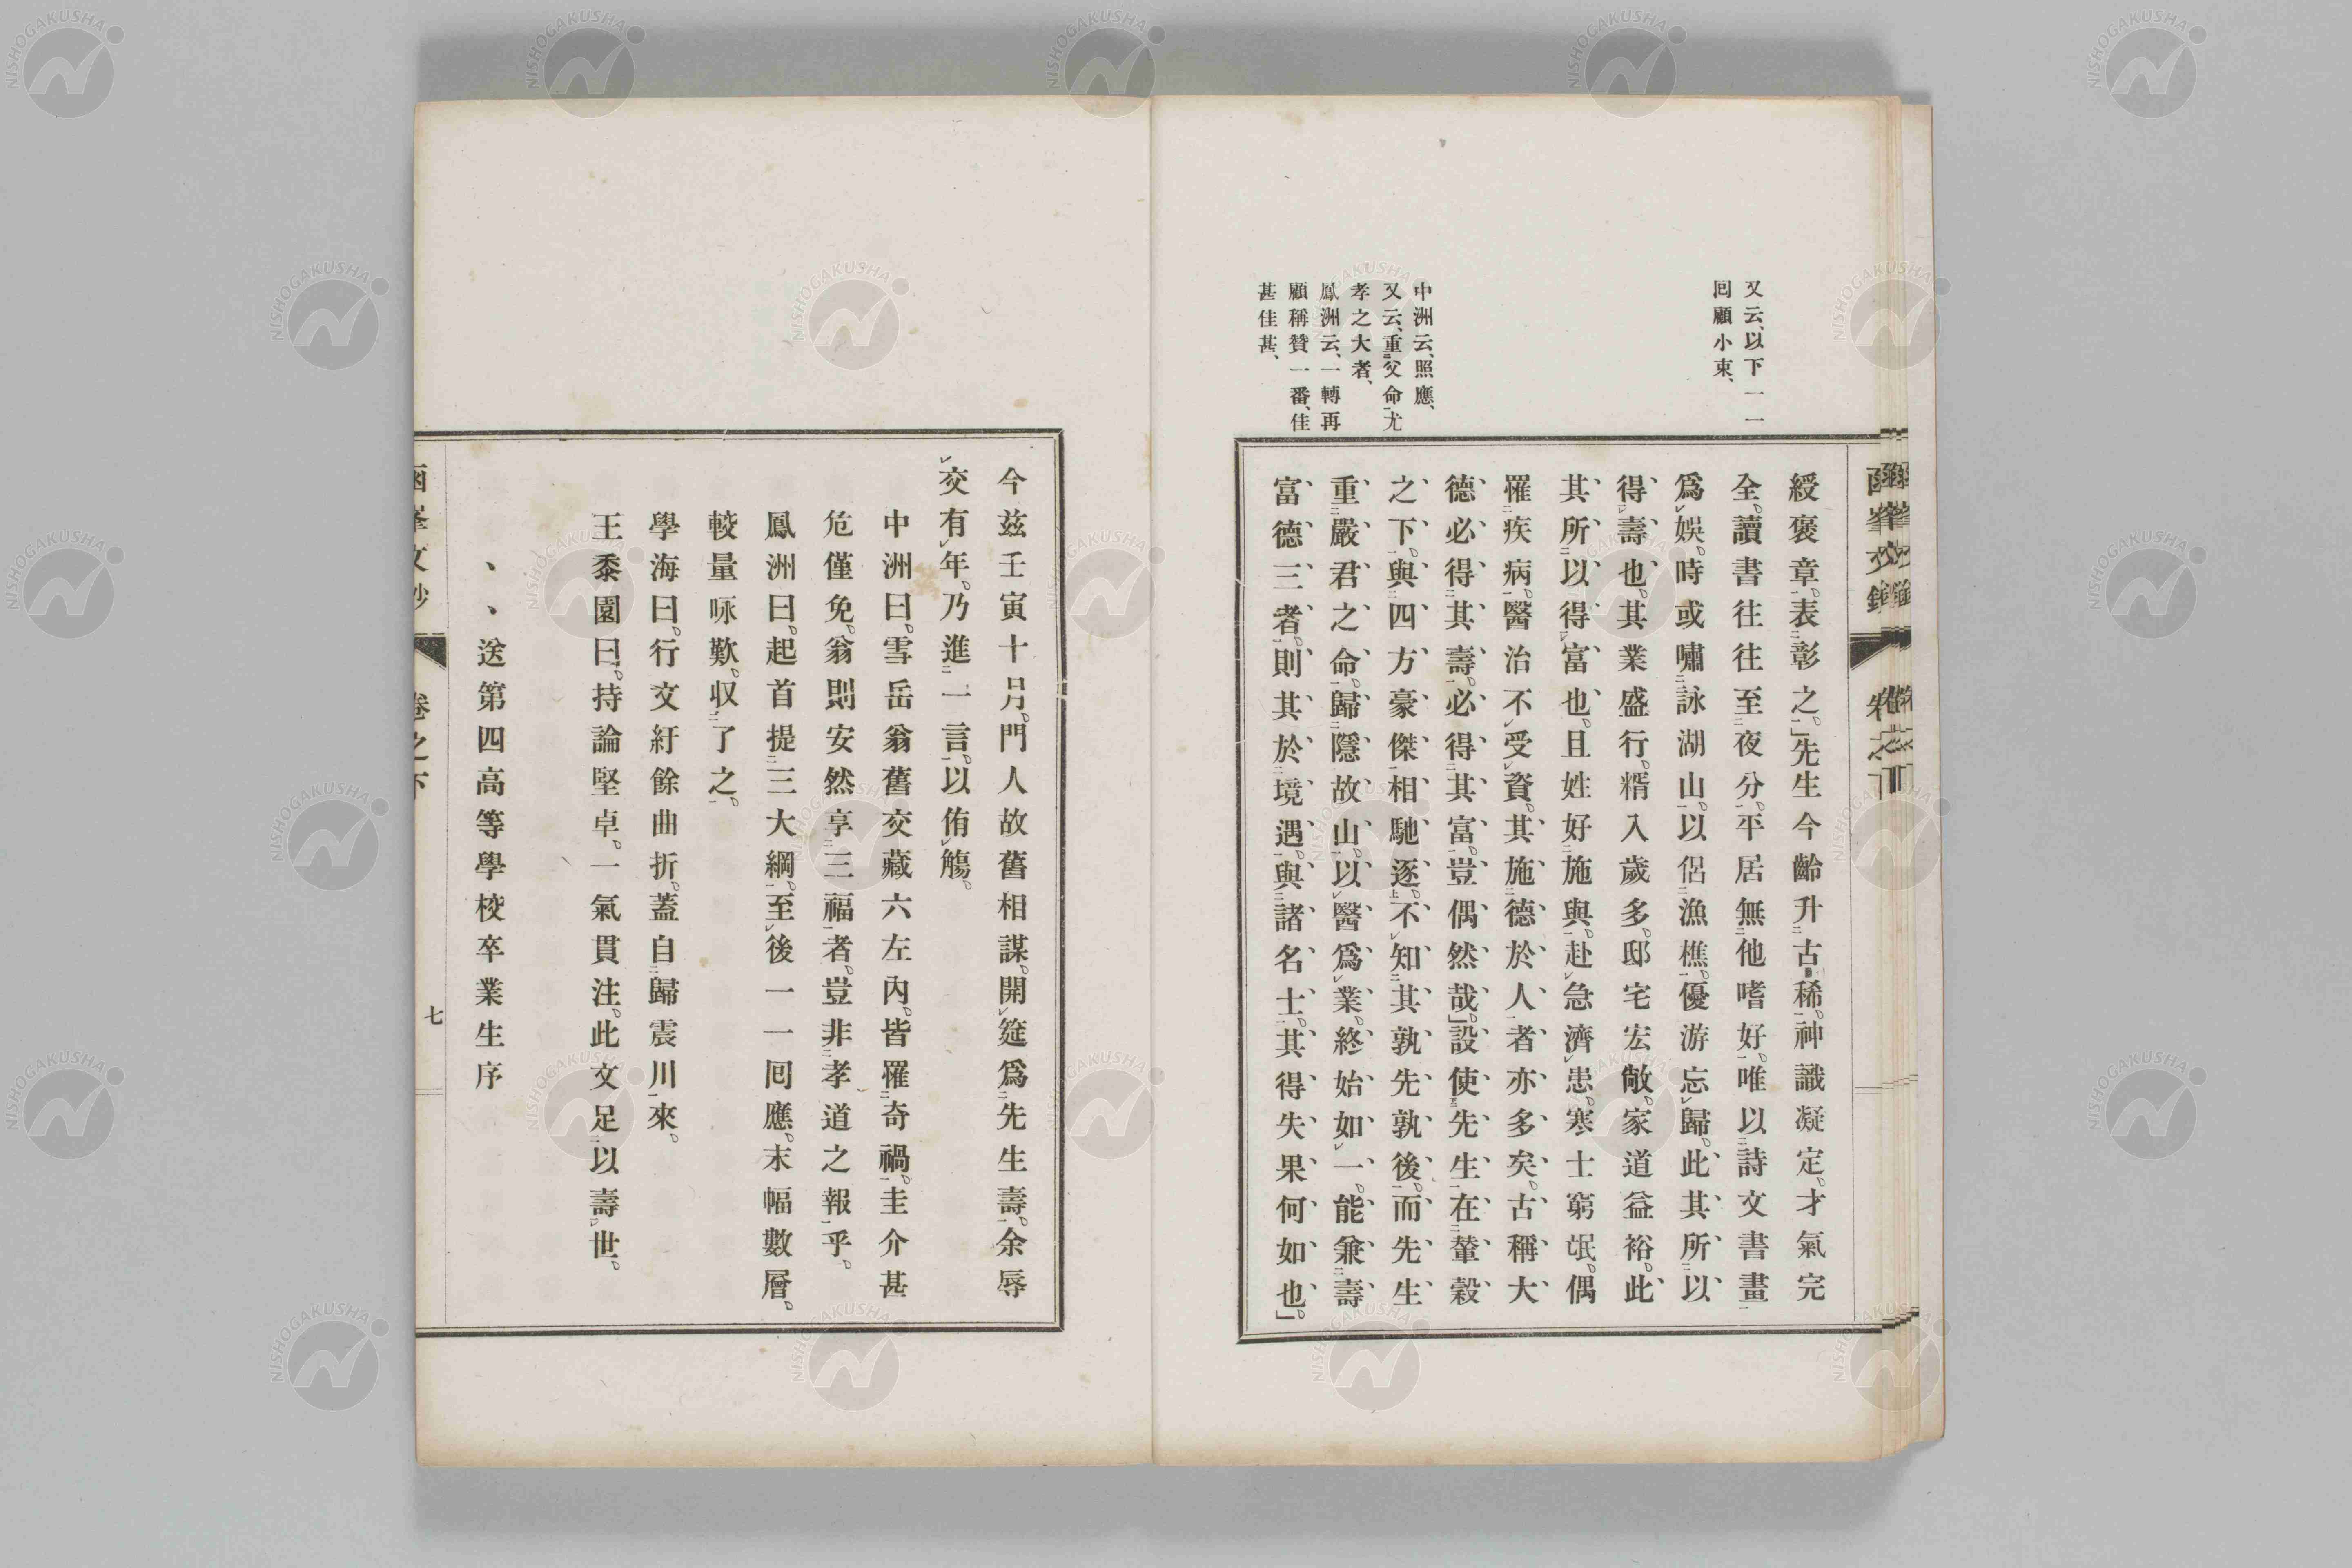 又云、以下一一
回顧小束、
中洲云、照應、
又云、重父命尤
孝之大者、
鳳洲云、一轉再
顧稱贊一番、佳
甚佳甚、
綬褒章。表彰之。」先生今齡升古稀。神識凝定。才氣完
全。讀書往往至夜分。平居無他嗜好。唯以詩文書畫
爲娯。時或嘯詠湖山。以侶漁樵。優游忘歸。此其所以
得壽也。其業盛行。糈入歲多。邸宅宏敞。家道益裕。此
其所以得富也。且姓好施與。赴急濟患。寒士窮氓。偶
罹疾病。醫治不受資。其施德於人者亦多矣。古稱大
德必得其壽。必得其富。豈偶然哉。」設使先生在輦轂
之下。與四方豪傑相馳逐。不知其孰先孰後。而先生
重嚴君之命。歸隱故山。以醫爲業。終始如一。能兼壽
富德三者。則其於境遇。與諸名士。其得失果何如也。」
函峯文鈔
卷之下
今茲壬寅十月。門人故舊相謀。開筵爲先生壽。余辱
交有年。乃進一言。以侑觴。
中洲曰。雪岳翁舊交藏六左內。皆罹奇禍。圭介甚
危僅免。翁則安然享三福者。豈非孝道之報乎。
鳳洲曰。起首提三大綱。至後一一回應。末幅數層。
較量咏歎。収了之。
學海曰。行文紆餘曲折。蓋自歸震川來。
王黍園曰。持論堅卓。一氣貫注。此文足以壽世。
、、送第四高等學校卒業生序
函峯文鈔
卷之下
七
NISHOGAKUSHA